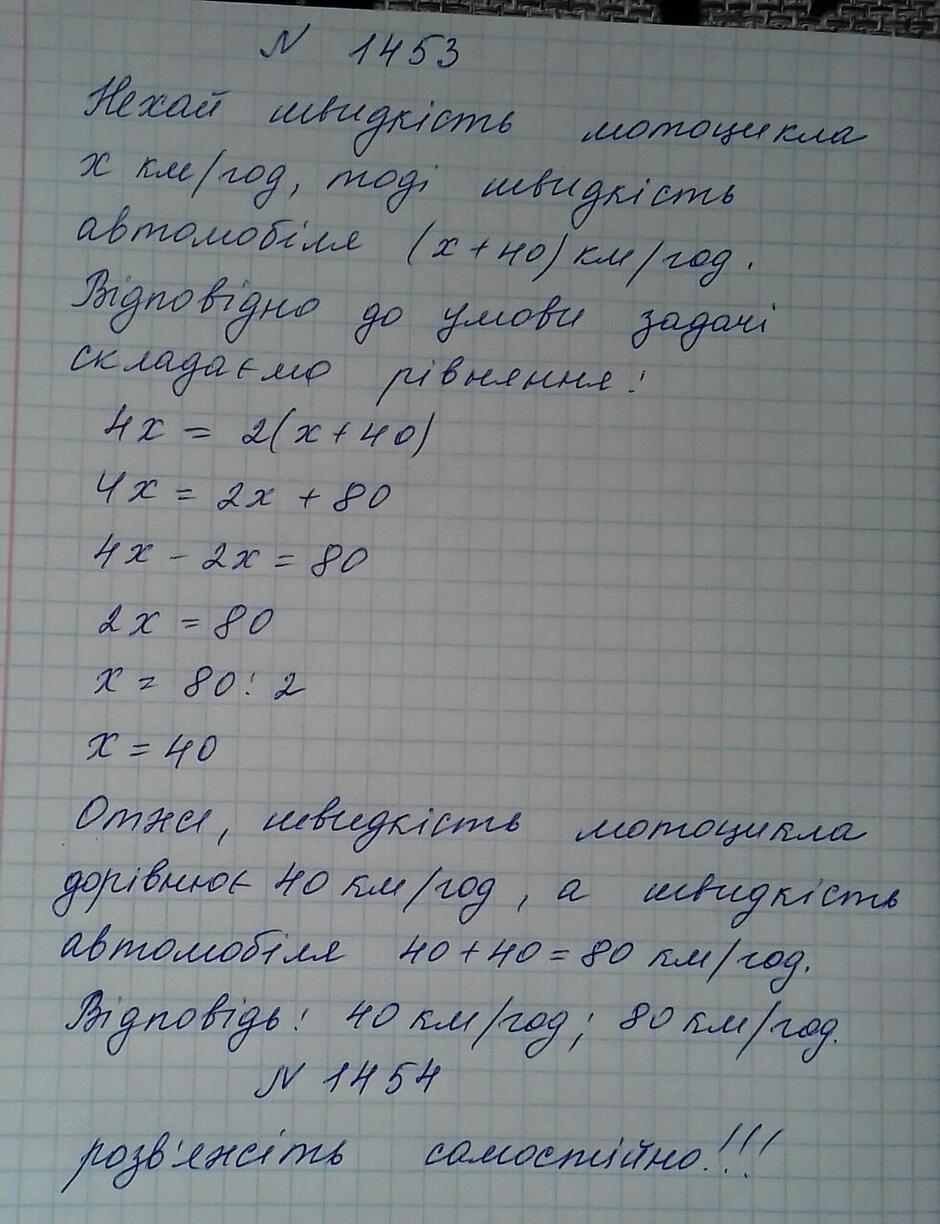 N 1453
Нехай швидкість мотоцикла
х км/год, тоді швидкість
автомобіля (х+40) км/год.
Відповідно до умови задачі
складаємо рівняння:
4х = 2(х+40)
4х = 2х + 80
4х - 2х = 80
2х = 80
х = 80 : 2
х = 40
Отже, швидкість мотоцикла
дорівнює 40 км/год, а швидкість
автомобіля 40+40=80 км/год.
Відповідь: 40 км/год; 80 км/год.
N 1454
розв'яжіть самостійно!!!